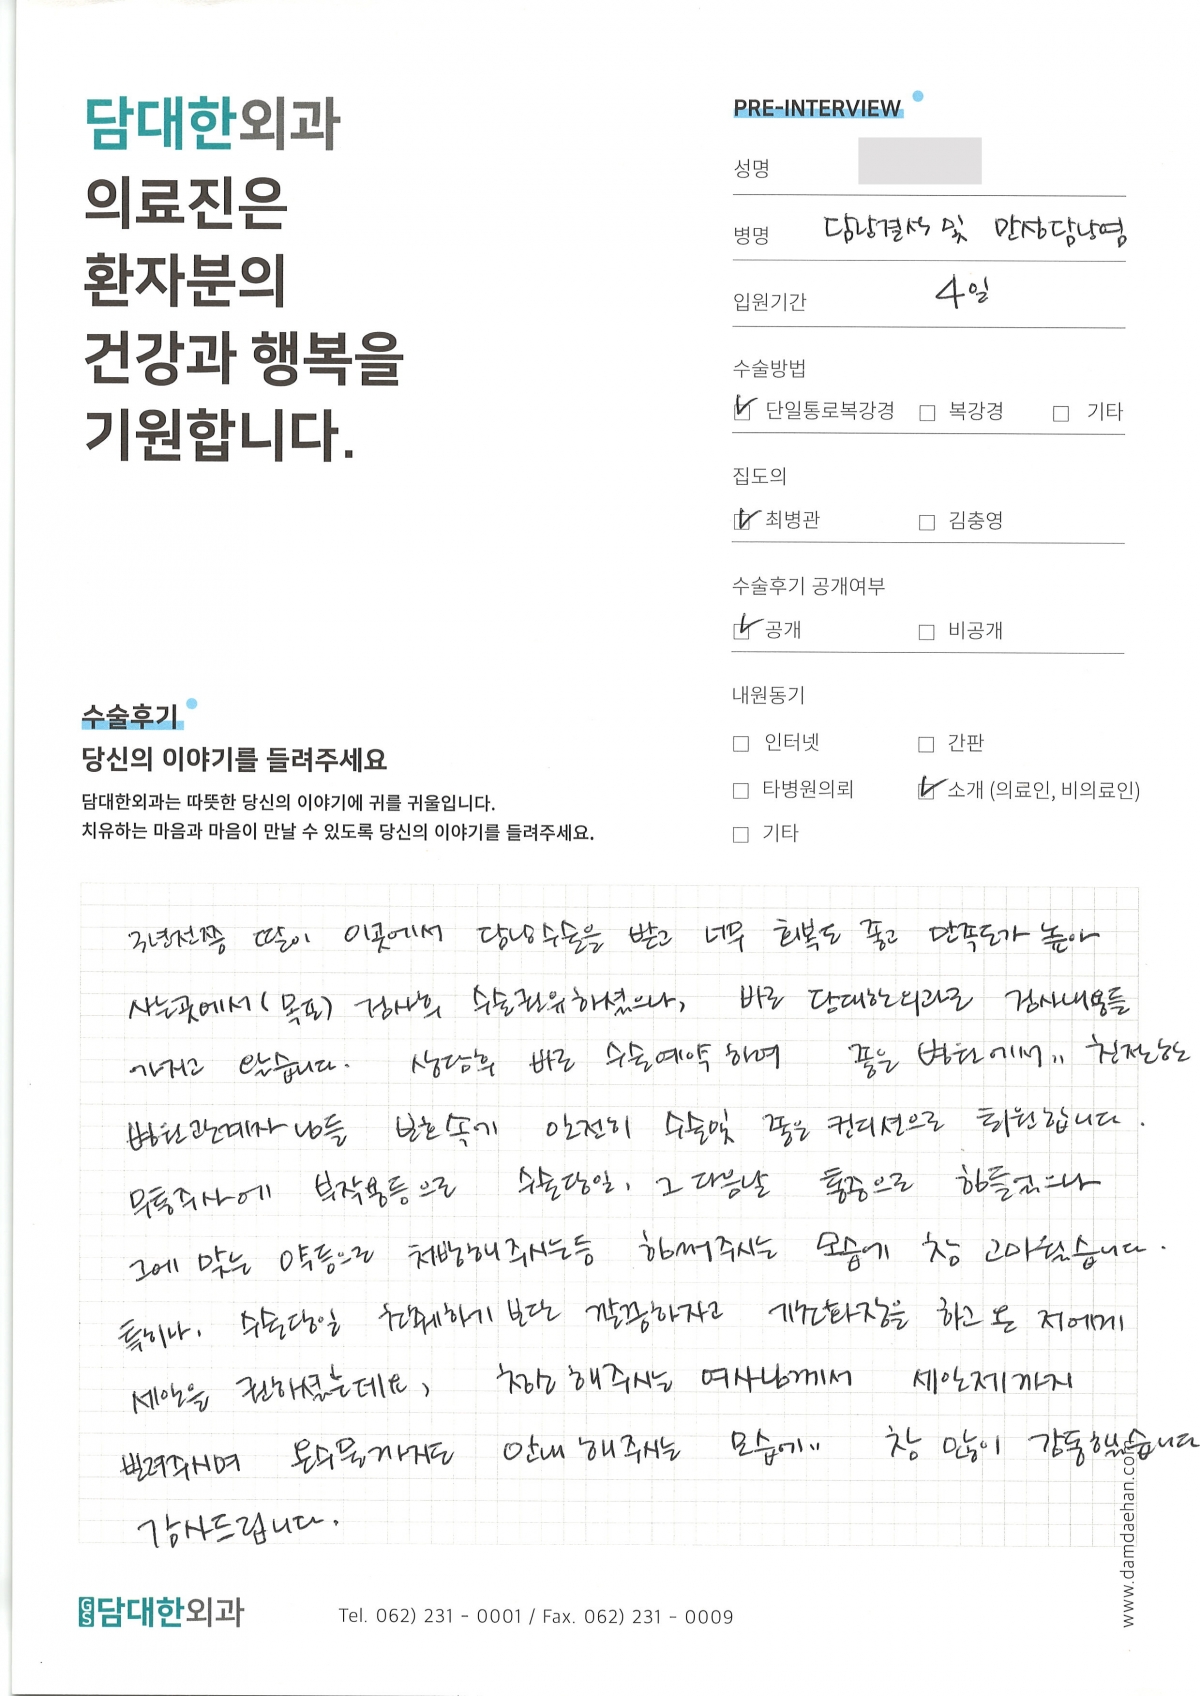 담대한외과
의료진은
환자분의
건강과 행복을
기원합니다.
PRE-INTERVIEW
성명
병명 담낭결석 및 만성담낭염
입원기간 4일
수술방법
단일통로복강경 복강경 기타
집도의
최병관 김충영
수술후기 공개여부
공개 비공개
내원동기
인터넷 간판
타병원의뢰 소개 (의료인, 비의료인)
기타
수술후기
당신의 이야기를 들려주세요
담대한외과는 따뜻한 당신의 이야기에 귀를 귀울입니다.
치유하는 마음과 마음이 만날 수 있도록 당신의 이야기를 들려주세요.
3년전쯤 딸이 이곳에서 담낭수술을 받고 너무 회복도 좋고 만족도가 높아
사는곳에서(목포) 검사후 수술권유하셨으나, 바로 담대한외과로 검사내용을
가지고 왔습니다. 상담후 바로 수술예약하여 좋은 병원에서" 친절한
병원관계자님들 보호속에 안전히 수술및 좋은 컨디션으로 퇴원합니다.
무통주사에 부작용등으로 수술당일, 그 다음날 통증으로 힘들었으나
그에 맞는 약등으로 처방해주시는등 힘써주시는 모습에 참 고마웠습니다.
특히나, 수술당일 하기보단 깔끔하자고 화장을 하고온 저에게
세안을 권하셨는데요, 청소해주시는 여사님께서 세안제까지
빌려주시며 온수물까지도 안내해주시는 모습에" 참 많이 감동했습니다
감사드립니다.
www.damdaehan.com
GS 담대한외과
Tel. 062) 231 - 0001 / Fax. 062) 231 - 0009